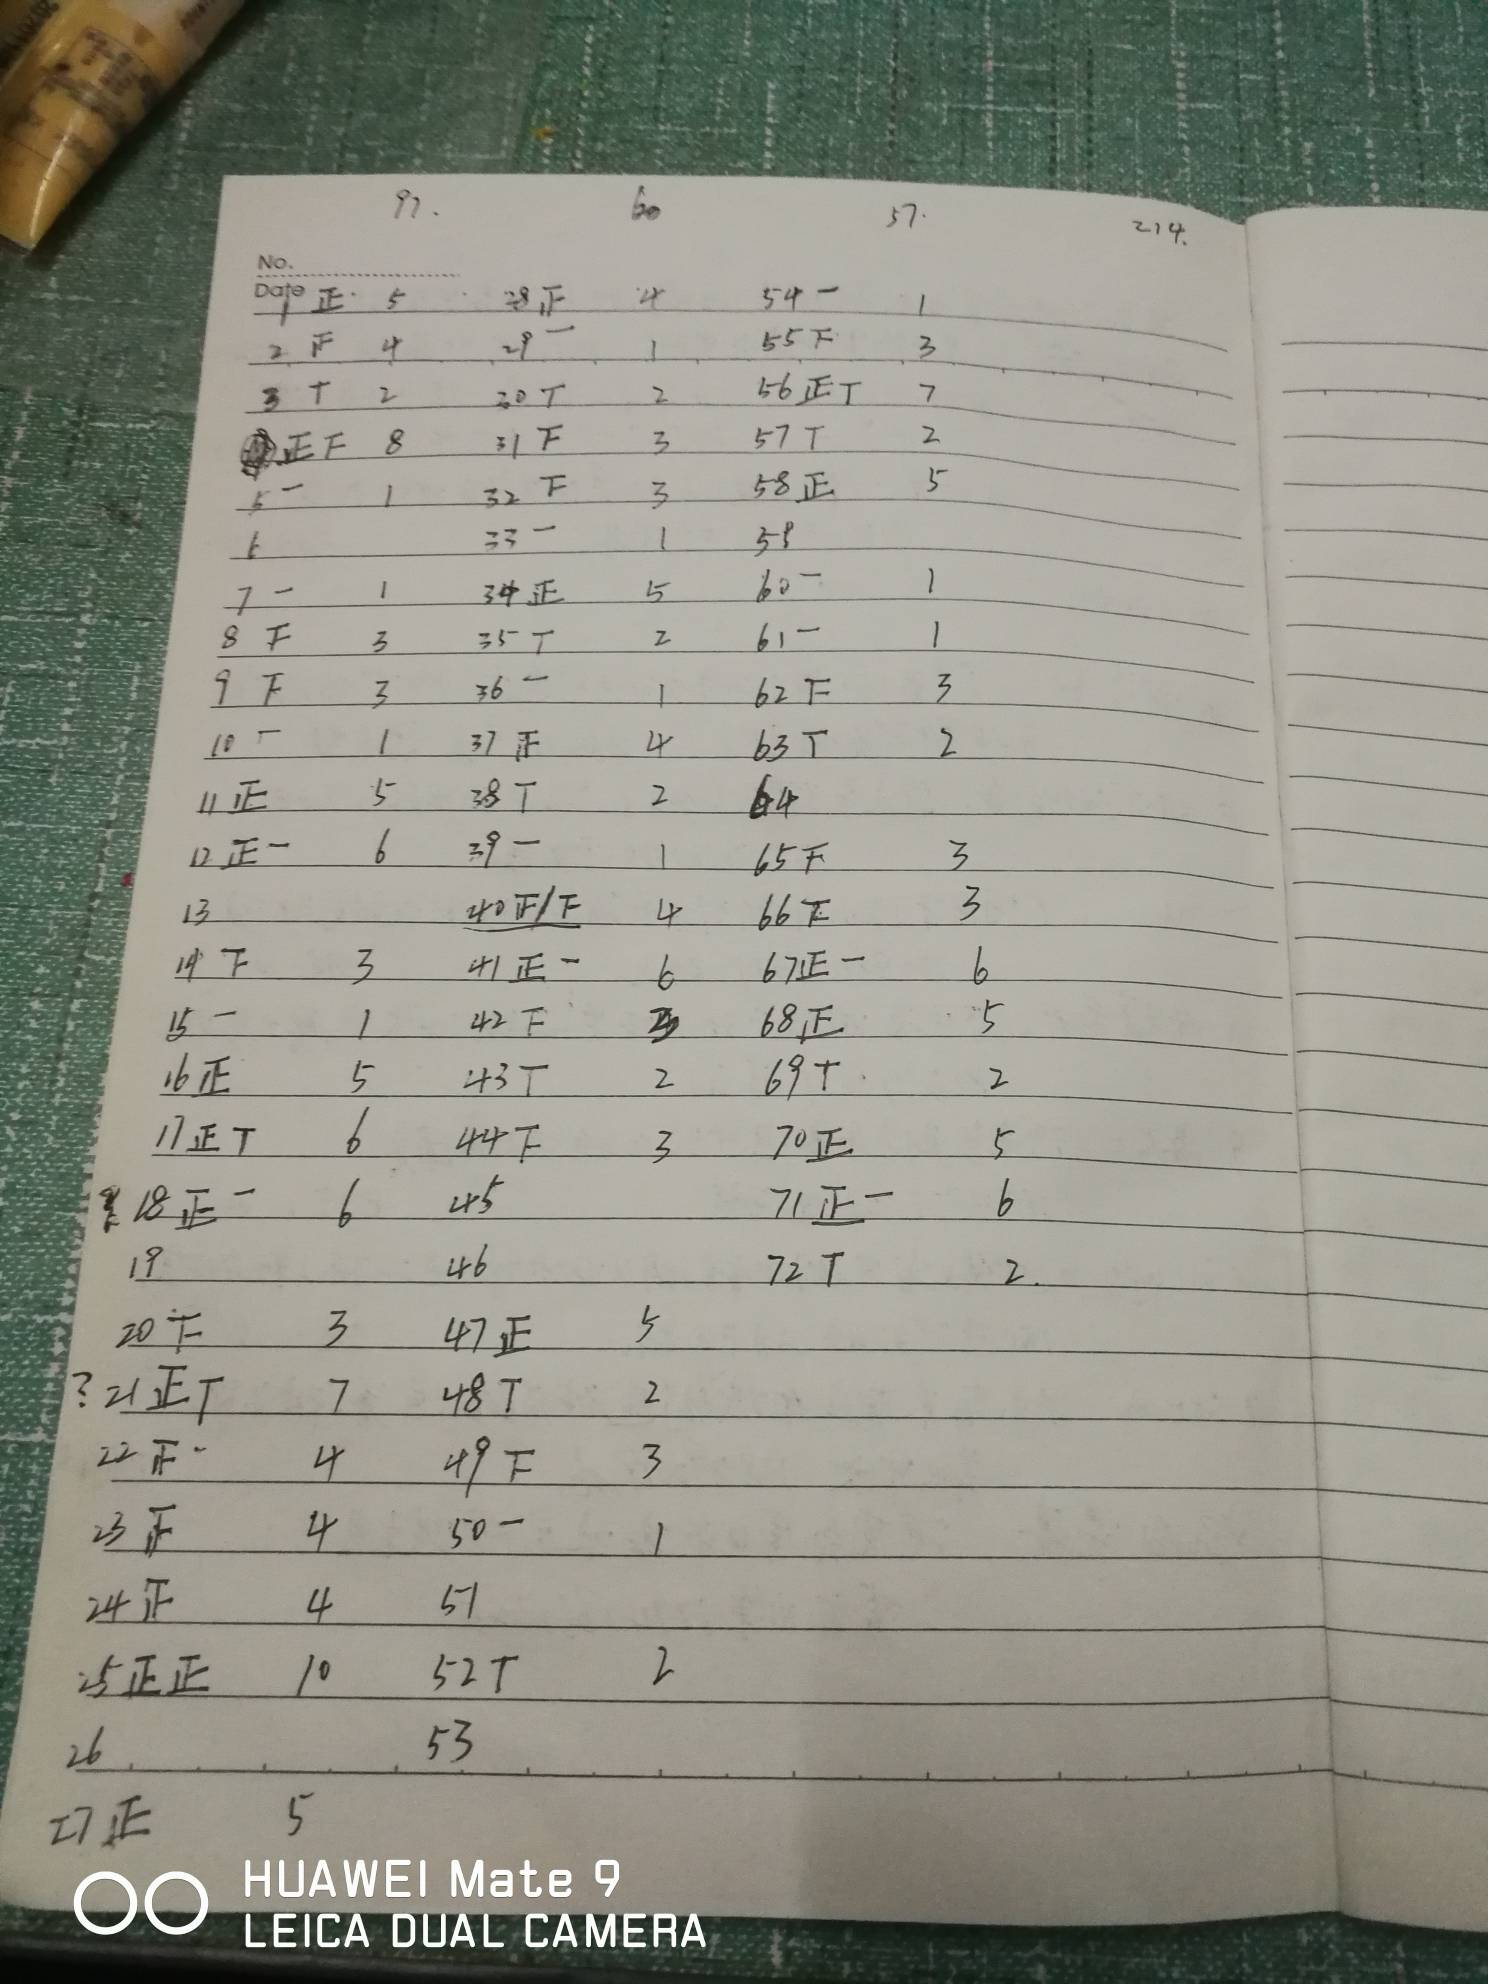 97. 60 57. 214.
No.
Date
1 正 5 28 正 4 54 一 1
2 正 4 29 一 1 55 下 3
3 T 2 30 T 2 56 正T 7
正下 8 31 下 3 57 T 2
5 一 1 32 下 3 58 正 5
6 33 一 1 59
7 一 1 34 正 5 60 一 1
8 下 3 35 T 2 61 一 1
9 下 3 36 一 1 62 下 3
10 一 1 37 正 4 63 T 2
11 正 5 38 T 2 64
12 正一 6 39 一 1 65 下 3
13 40 正/下 4 66 下 3
14 下 3 41 正一 6 67 正一 6
15 一 1 42 下 3 68 正 5
16 正 5 43 T 2 69 T 2
17 正T 6 44 下 3 70 正 5
18 正一 6 45 71 正一 6
19 46 72 T 2.
20 下 3 47 正 5
? 21 正T 7 48 T 2
22 正 4 49 下 3
23 正 4 50 一 1
24 正 4 51
25 正正 10 52 T 2
26 53
27 正 5
HUAWEI Mate 9
LEICA DUAL CAMERA